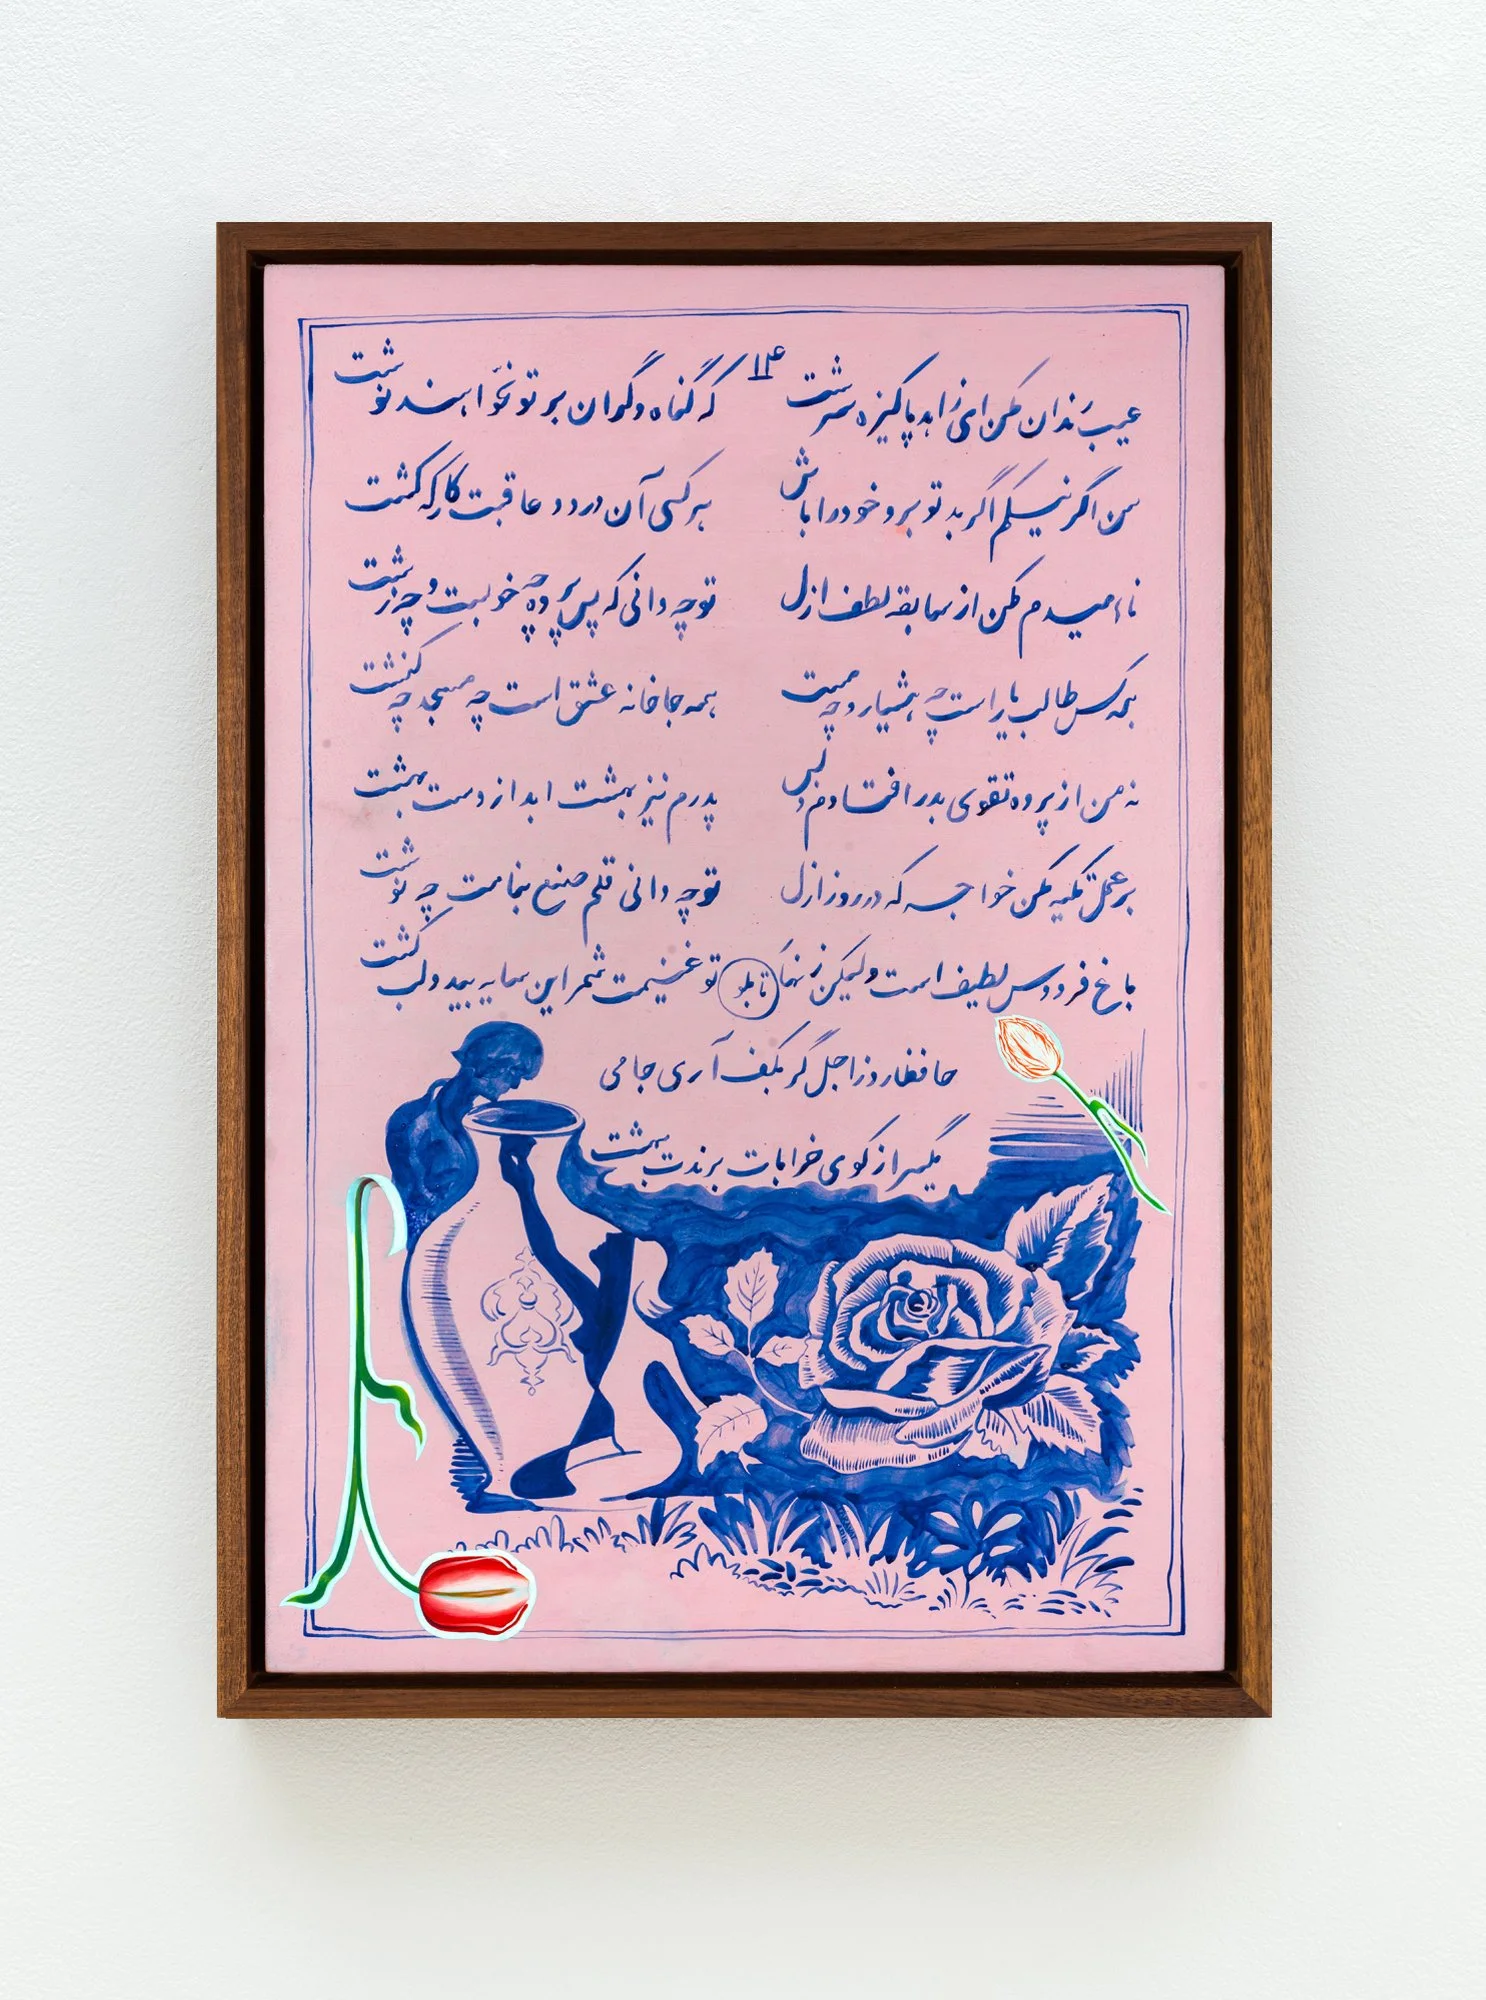 عیب رندان مکن ای زاهد پاکیزه سرشت ۱۴ که گناه دگران بر تو نخواهند نوشت
من اگر نیکم اگر بد تو برو خود را باش هر کسی آن درود عاقبت کار که کشت
ناامیدم مکن از سابقه لطف ازل تو چه دانی که پس پرده چه خوبست و چه زشت
همه کس طالب یار است چه هشیار و چه مست همه جا خانه عشق است چه مسجد چه کنشت
نه من از پرده تقوی بدر افتادم و بس پدرم نیز بهشت ابد از دست بهشت
بر عمل تکیه مکن خواجه که در روز ازل تو چه دانی قلم صنع بنامت چه نوشت
باغ فردوس لطیف است ولیکن زنها تابلو تو غنیمت شمر این سایه بید و لب کشت
حافظا روز اجل گر بکف آری جامی
یکسر از کوی خرابات برندت بهشت